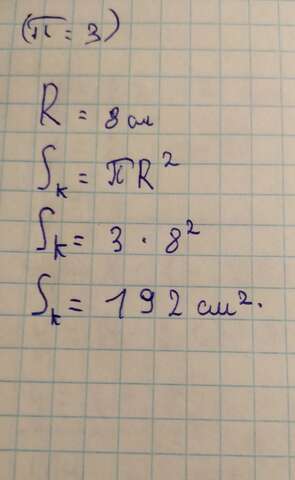 (π = 3)
R = 8 см
Sк = πR²
Sк = 3 · 8²
Sк = 192 см².